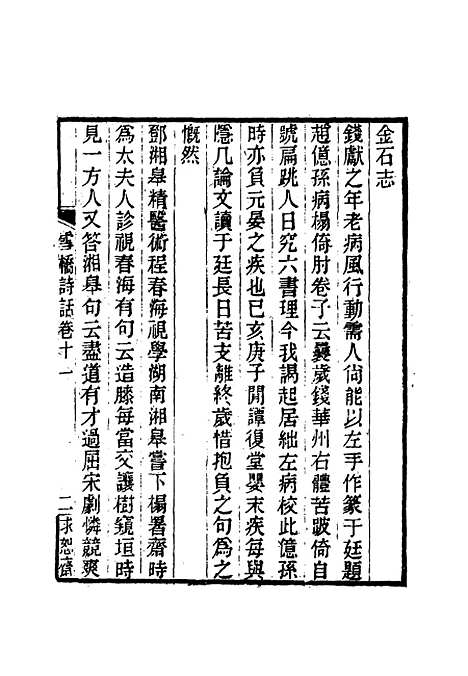 金石志
錢獻之年老病風行動需人尙能以左手作篆于廷題
趙億孫病榻倚肘卷子云曩歲錢華州右體苦跛倚自
號扁跳人日究六書理今我謁起居絀左病校此億孫
時亦負元晏之疾也已亥庚子閒譚復堂嬰末疾每與
隱几論文讀于廷長日苦支離終歲惜抱負之句爲之
慨然
鄧湘皋精醫術程春海視學湖南湘皋嘗下榻署齋時
爲太夫人診視春海有句云造膝每當交讓樹窺垣時
見一方人又答湘皋句云盡道有才過屈宋劇憐競爽
雪橋詩話卷十一 二 求恕齋